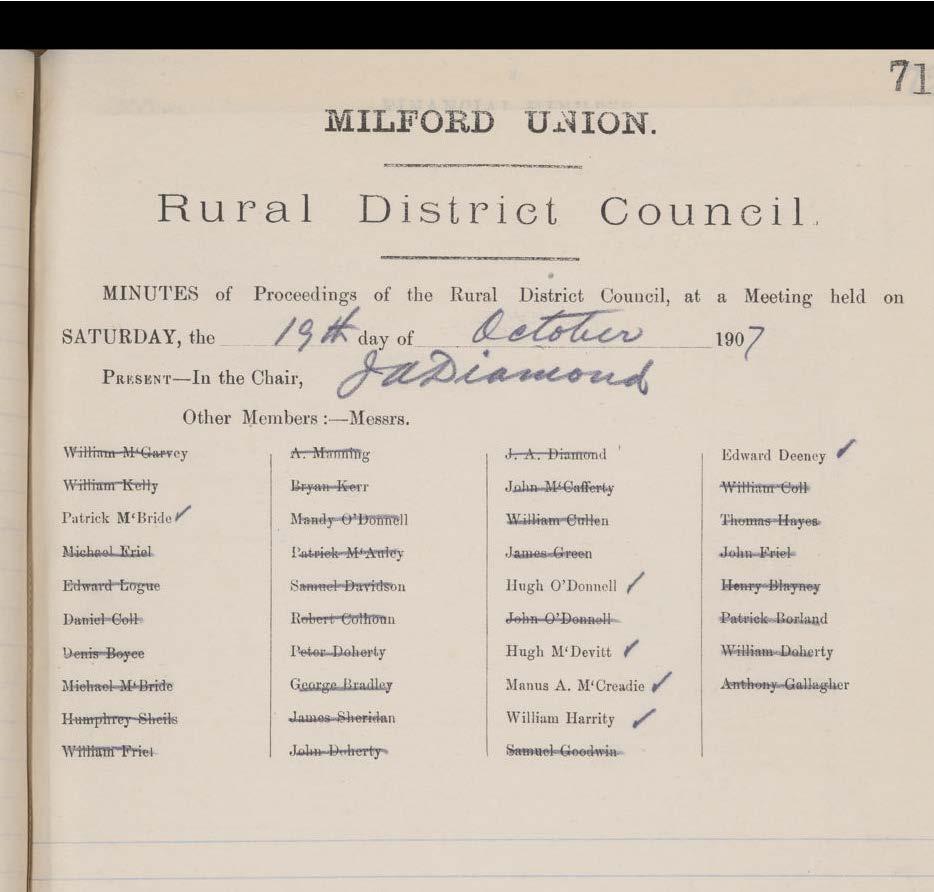 71
MILFORD UNION.
Rural District Council.
MINUTES of Proceedings of the Rural District Council, at a Meeting held on
SATURDAY, the 19th day of October 1907
PRESENT—In the Chair, J A Diamond
Other Members :—Messrs.
William M‘Garvey
William Kelly
Patrick M‘Bride ✓
Michael Friel
Edward Logue
Daniel Coll
Denis Boyce
Michael M‘Bride
Humphrey Sheils
William Friel
A. Manning
Bryan Kerr
Mandy O’Donnell
Patrick M‘Auley
Samuel Davidson
Robert Colhoun
Peter Doherty
George Bradley
James Sheridan
John Doherty
J. A. Diamond
John M‘Cafferty
William Cullen
James Green
Hugh O’Donnell ✓
John O’Donnell
Hugh M‘Devitt ✓
Manus A. M‘Creadie ✓
William Harrity ✓
Samuel Goodwin
Edward Deeney ✓
William Coll
Thomas Hayes
John Friel
Henry Blayney
Patrick Borland
William Doherty
Anthony Gallagher